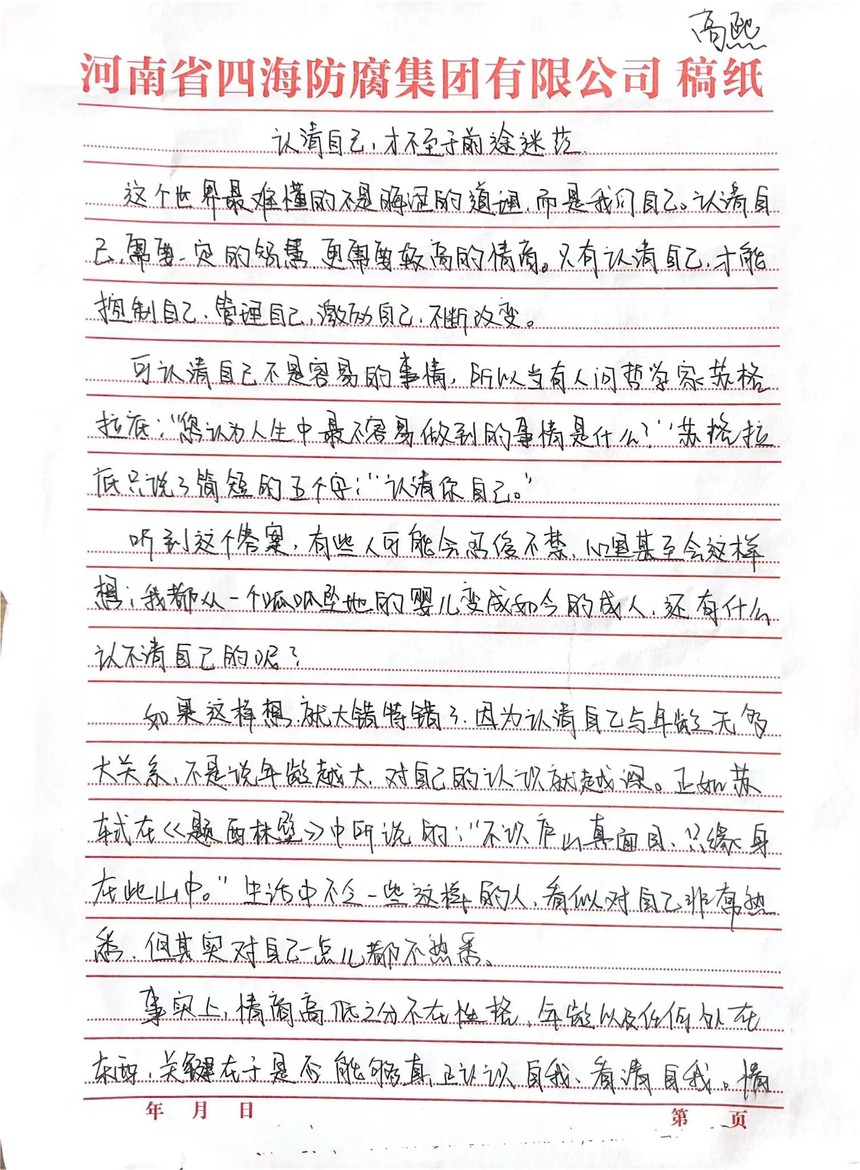 高熙
河南省四海防腐集团有限公司 稿纸
认清自己,才不至于前途迷茫
这个世界最难懂的不是晦涩的道理,而是我们自己。认清自
己,需要一定的智慧,更需要较高的情商。只有认清自己,才能
控制自己,管理自己,激励自己,不断改变。
可认清自己不是容易的事情,所以当有人问哲学家苏格
拉底:“您认为人生中最不容易做到的事情是什么?”苏格拉
底只说了简短的五个字:“认清你自己。”
听到这个答案,有些人可能会忍俊不禁,心里甚至会这样
想:我都从一个呱呱坠地的婴儿变成如今的成人,还有什么
认不清自己的呢?
如果这样想,就大错特错了,因为认清自己与年龄无多
大关系,不是说年龄越大,对自己的认识就越深。正如苏
轼在《题西林壁》中所说的:“不识庐山真面目,只缘身
在此山中。”生活中不乏一些这样的人,看似对自己非常熟
悉,但其实对自己一点儿都不熟悉。
事实上,情商高低之分不在性格,年龄以及任何外在
东西,关键在于是否能够真正认识自我、看清自我。情
年 月 日
第 页